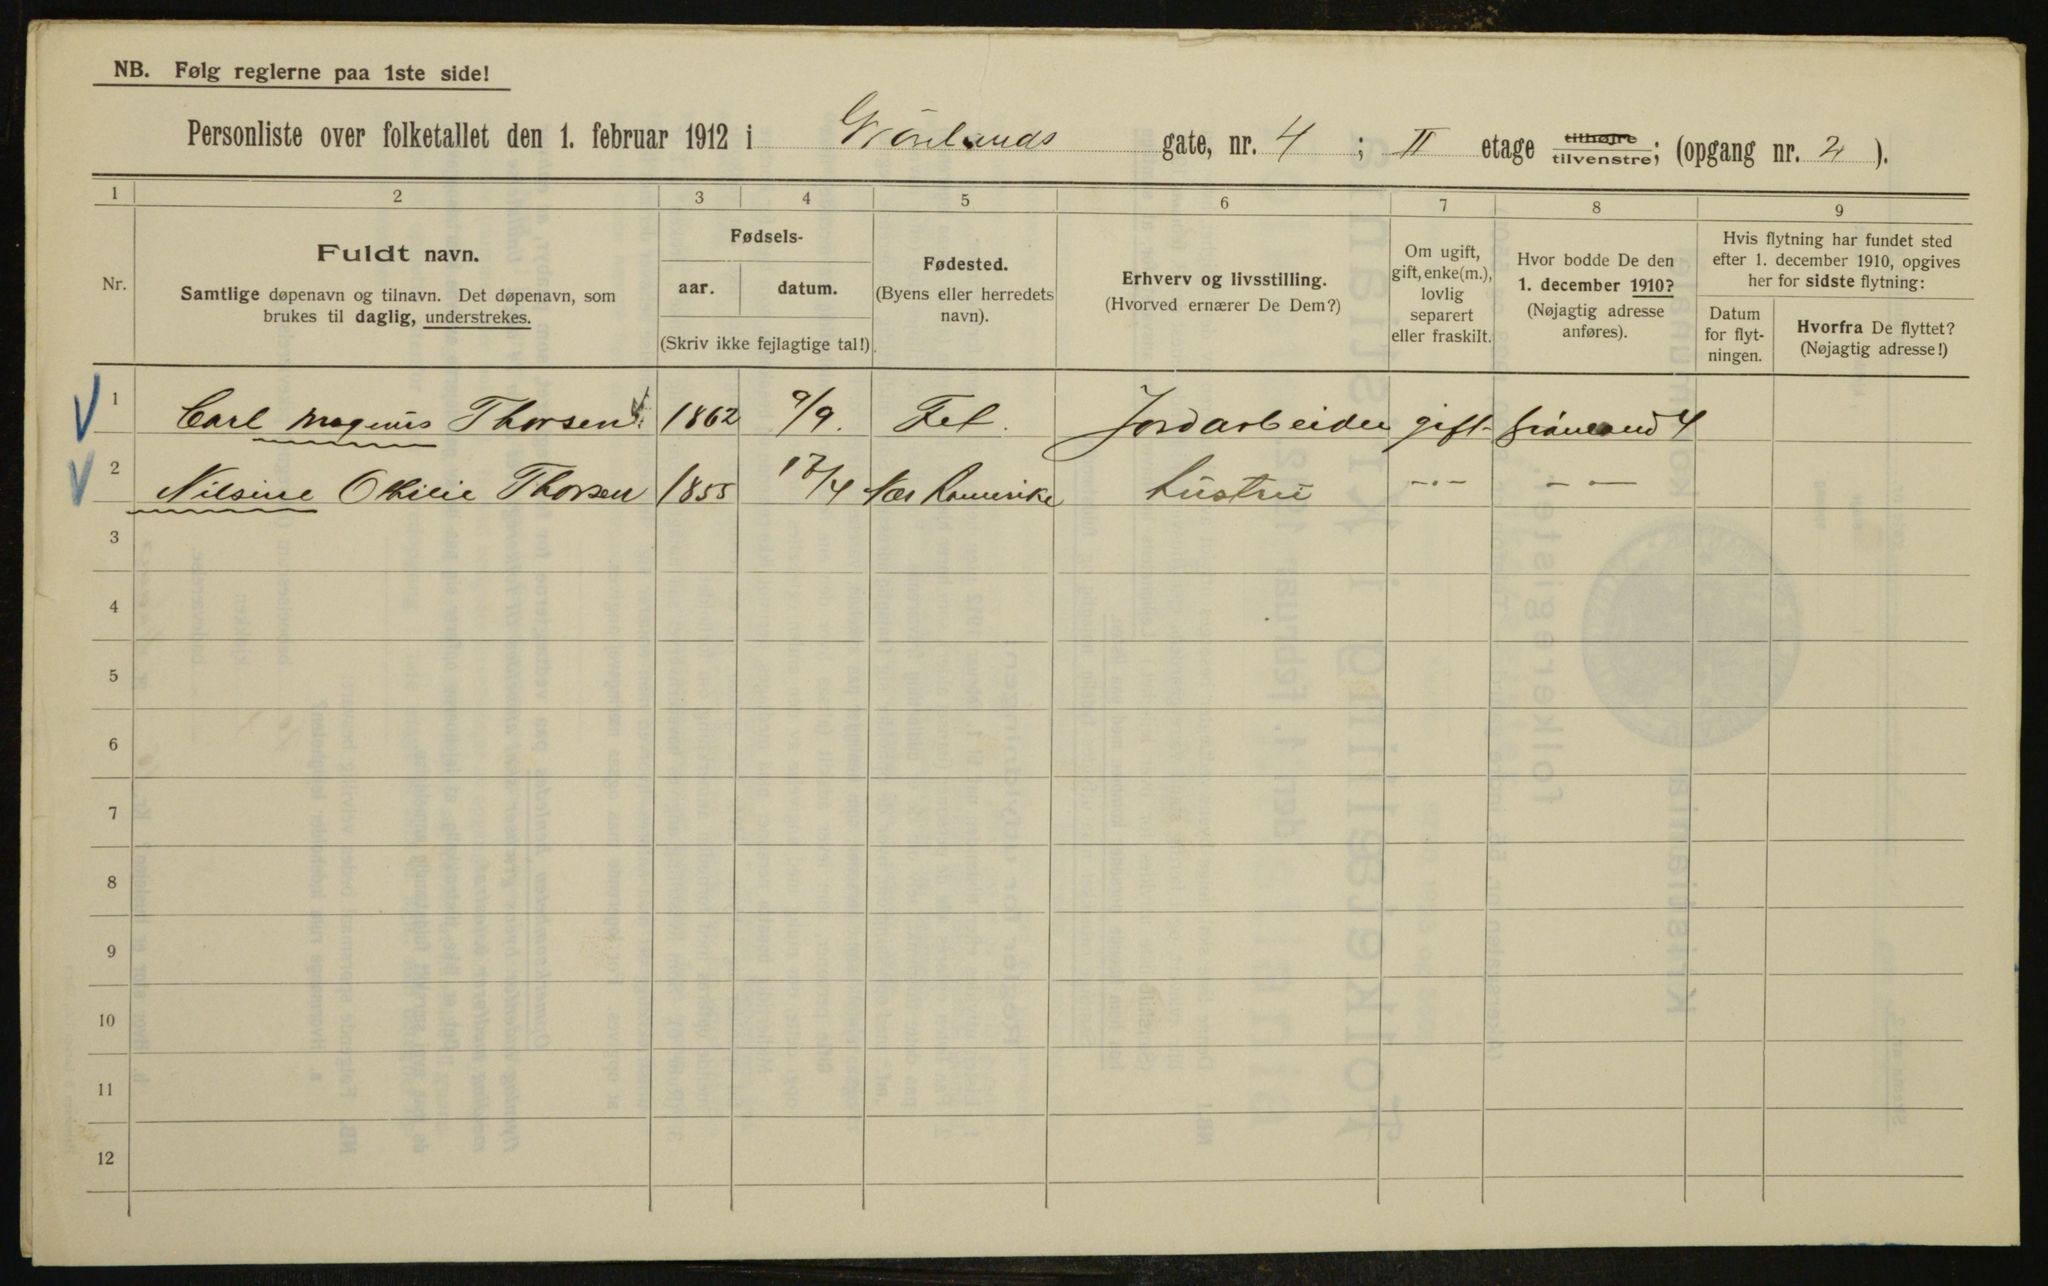 NB. Følg reglerne paa 1ste side!
Personliste over folketallet den 1. februar 1912 i Grönlands gate, nr. 4 ; II etage tilhøjre tilvenstre; (opgang nr. 2 ).
1 2 3 4 5 6 7 8 9
Nr.
Fuldt navn.
Samtlige døpenavn og tilnavn. Det døpenavn, som
brukes til daglig, understrekes.
Fødsels-
aar. datum.
(Skriv ikke fejlagtige tal!)
Fødested.
(Byens eller herredets
navn).
Erhverv og livsstilling.
(Hvorved ernærer De Dem?)
Om ugift,
gift, enke(m.),
lovlig
separert
eller fraskilt.
Hvor bodde De den
1. december 1910?
(Nøjagtig adresse
anføres).
Hvis flytning har fundet sted
efter 1. december 1910, opgives
her for sidste flytning:
Datum
for flyt-
ningen.
Hvorfra De flyttet?
(Nøjagtig adresse!)
1 Carl Magnus Thorsen 1862 9/9. Fet. Jordarbeider gift Grönland 4
2 Nilsine Othilie Thorsen 1855 17/4 Nes Romerike hustru -"- - -
3
4
5
6
7
8
9
10
11
12